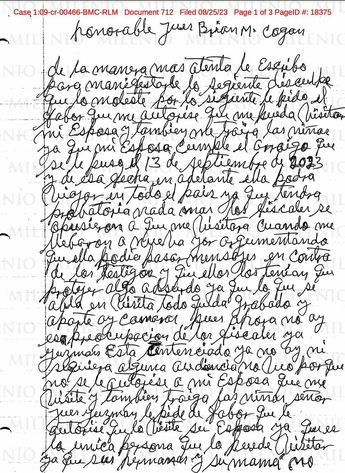 Case 1:09-cr-00466-BMC-RLM Document 712 Filed 08/25/23 Page 1 of 3 PageID #: 18375
honorable Juez Brian M. Cogan
de la manera mas atenta le Escribo
para manifestarle lo siguiente disculpe
que lo moleste por lo siguiente le pido el
fabor que me autorise que me pueda Visitar
mi Esposa y tambien me traiga las niñas
ya que mi Esposa cumple el
se le puso el 13 de septiembre de 2023
y de esa fecha en adelante ella podra
Viajar en todo el pais ya que tendra
probatoria nada mas los fiscales se
opusieron a que me Visitara cuando me
llebaron a nueba yor argumentando
que ella podia pasar mensajes en contra
de los testigos y que ellos los tenian que
proteger algo ya que lo que se
abla en Visita todo queda grabado y
aparte ay camaras pues ahora no ay
esa preocupacion de los fiscales ya
guzman Esta Centenciado ya no ay ni
alguna audiencia no Veo por que
no se le autorise a mi Esposa que me
Visite y tambien traiga las niñas señor
juez guzman le pide de fabor que le
autorise que lo Visite su Esposa ya que es
la unica persona que lo puede Visitar
ya que sus hermanas y su mama no
MILENIO